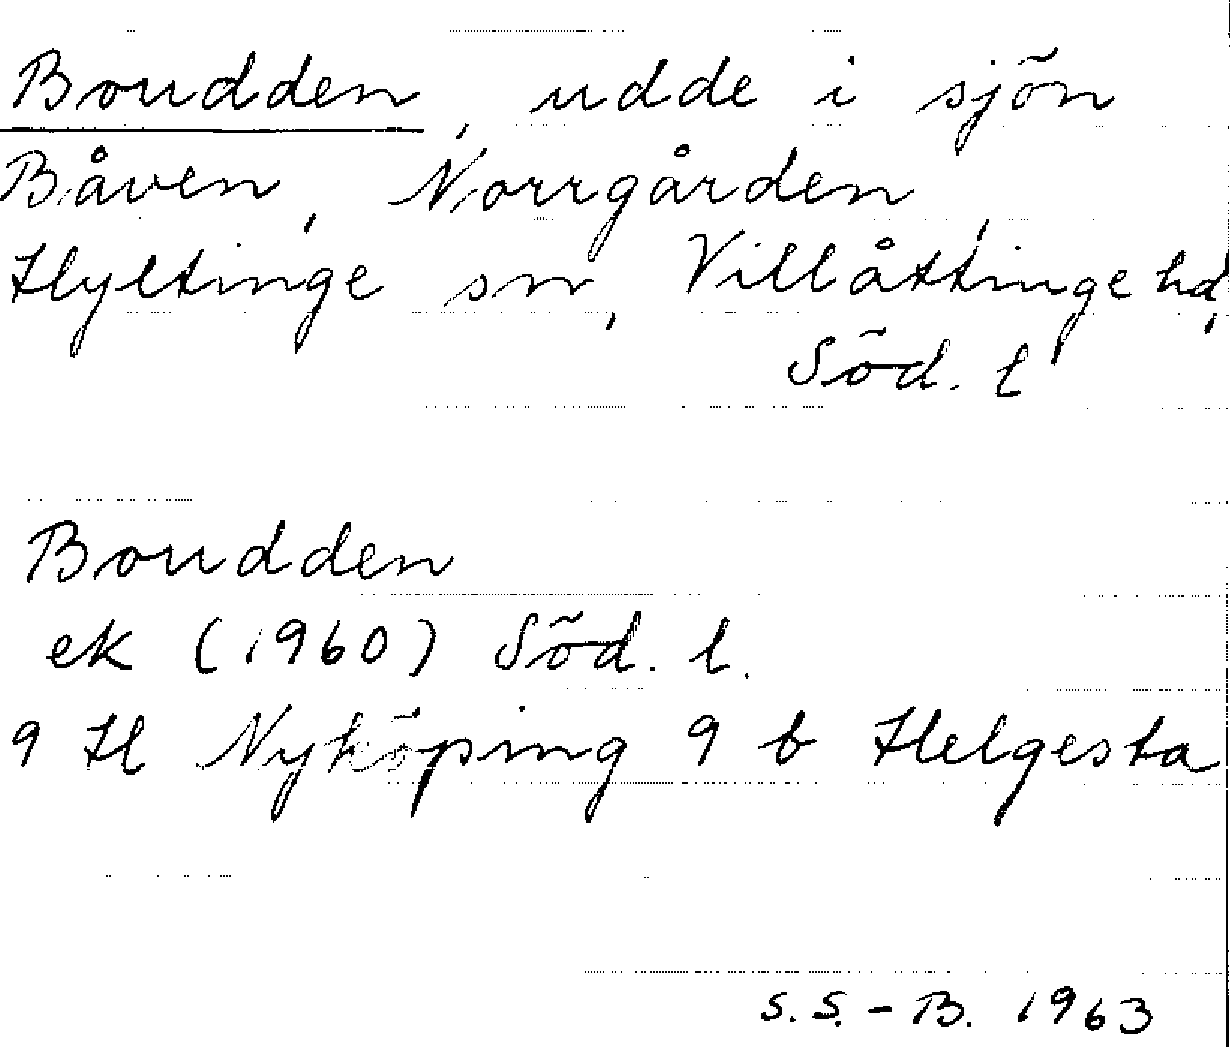 Boudden, udde i sjön
Båven, Norrgården,
Hyltinge sn, Villåttinge hd,
Söd. l
Boudden
ek (1960) Söd. l.
9 H Nyköping 9 b Helgesta
S. S. - B. 1963